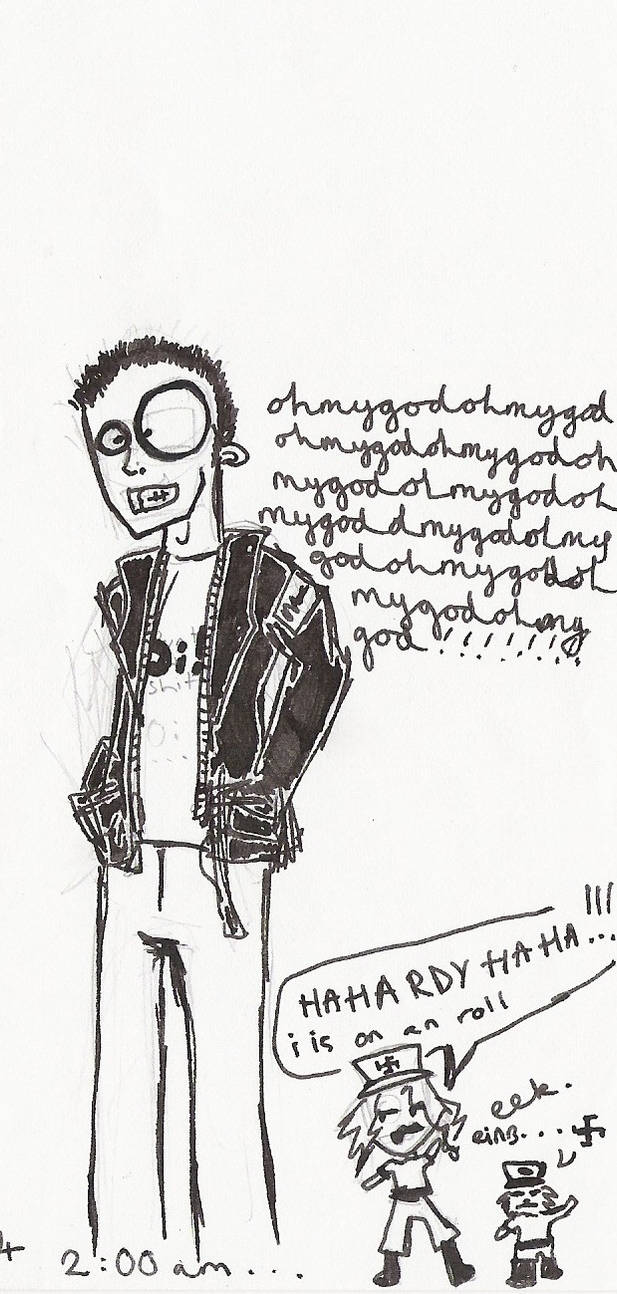 ohmygodohmygod
ohmygodohmygodoh
mygodohmygodoh
mygoddmygodohmy
godohmygodoh
mygodohmy
god !!!!!!!!
Oi!
shit
Oi
...
!!!
HAHARDY HAHA...
i is on an roll
eek.
eins...
2:00 am...